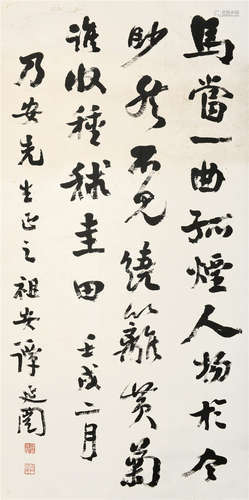 馬當一曲孤煙人物於今
眇然不見繞籬黃菊
誰收種秫圭田 壬戌二月
乃安先生正之 祖安譚延闓